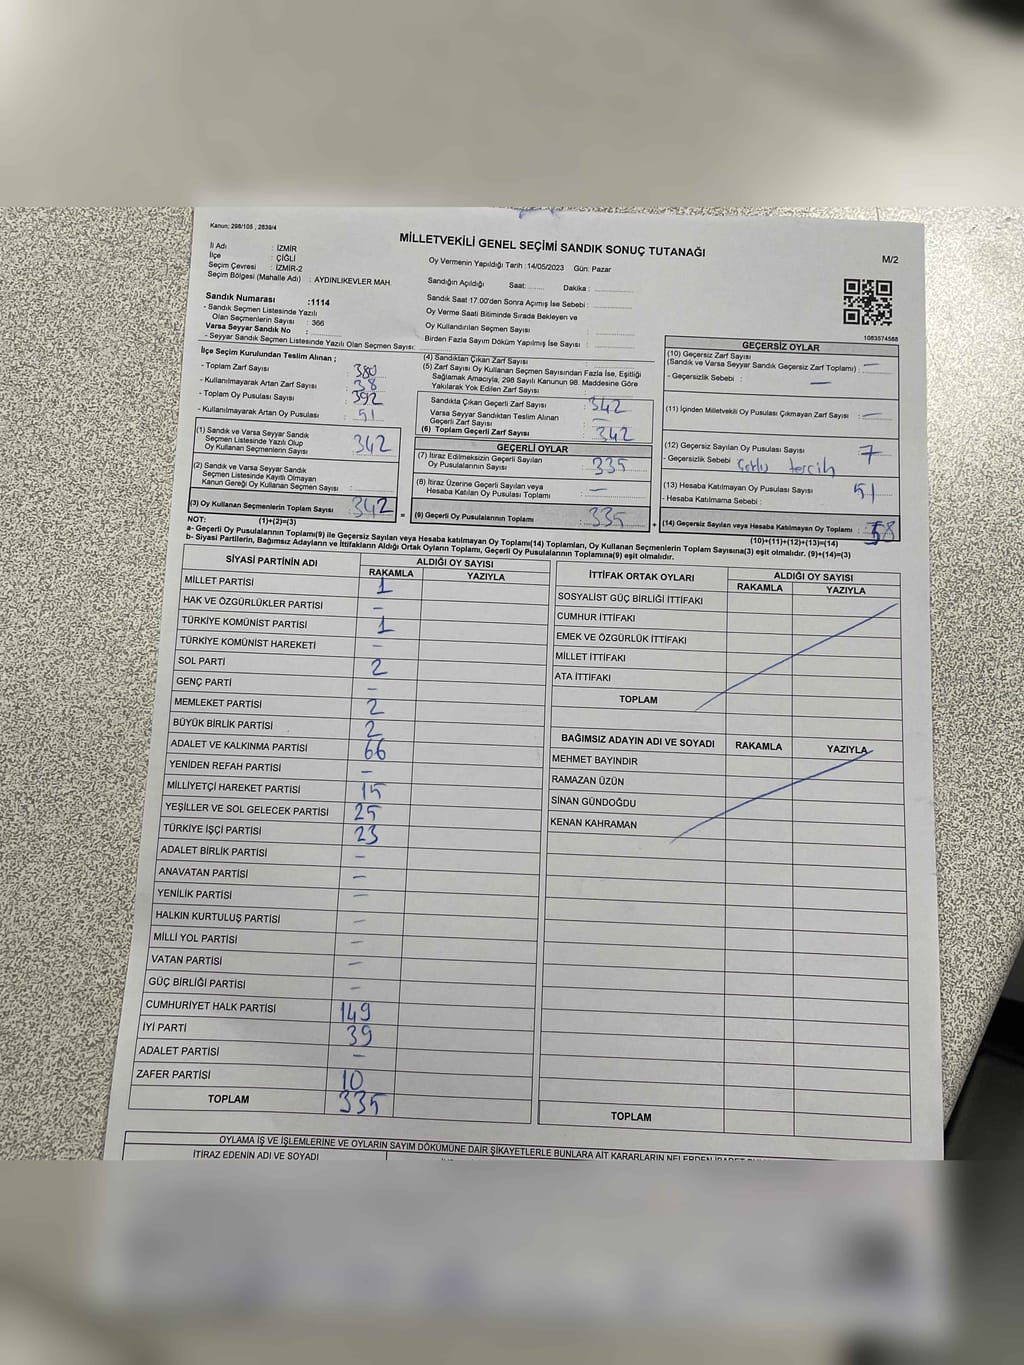 Kanun; 298/105 , 2839/4
MİLLETVEKİLİ GENEL SEÇİMİ SANDIK SONUÇ TUTANAĞI
M/2
İl Adı : İZMİR
İlçe : ÇİĞLİ
Seçim Çevresi : İZMİR-2
Seçim Bölgesi (Mahalle Adı) : AYDINLIKEVLER MAH.
Oy Vermenin Yapıldığı Tarih :14/05/2023 Gün: Pazar
Sandığın Açıldığı Saat:........ Dakika :..............
Sandık Saat 17.00'den Sonra Açımış İse Sebebi :
Oy Verme Saati Bitiminde Sırada Bekleyen ve
Oy Kullandırılan Seçmen Sayısı :
Birden Fazla Sayım Döküm Yapılmış İse Sayısı :
1083574588
Sandık Numarası :1114
- Sandık Seçmen Listesinde Yazılı
Olan Seçmenlerin Sayısı : 366
Varsa Seyyar Sandık No :
- Seyyar Sandık Seçmen Listesinde Yazılı Olan Seçmen Sayısı:
İlçe Seçim Kurulundan Teslim Alınan ;
- Toplam Zarf Sayısı : 380
- Kullanılmayarak Artan Zarf Sayısı : 38
- Toplam Oy Pusulası : 392
- Kullanılmayarak Artan Oy Pusulası : 51
(1) Sandık ve Varsa Seyyar Sandık
Seçmen Listesinde Yazılı Olup
Oy Kullanan Seçmenlerin Sayısı : 342
(2) Sandık ve Varsa Seyyar Sandık
Seçmen Listesinde Kayıtlı Olmayan
Kanun Gereği Oy Kullanan Seçmen Sayısı :
(3) Oy Kullanan Seçmenlerin Toplam Sayısı : 342
(1)+(2)=(3)
(4) Sandıktan Çıkan Zarf Sayısı :
(5) Zarf Sayısı Oy Kullanan Seçmen Sayısından Fazla İse, Eşitliği
Sağlamak Amacıyla, 298 Sayılı Kanunun 98. Maddesine Göre
Yakılarak Yok Edilen Zarf Sayısı :
Sandıkta Çıkan Geçerli Zarf Sayısı : 342
Varsa Seyyar Sandıktan Teslim Alınan
Geçerli Zarf Sayısı : —
(6) Toplam Geçerli Zarf Sayısı : 342
GEÇERLİ OYLAR
(7) İtiraz Edilmeksizin Geçerli Sayılan
Oy Pusulalarının Sayısı : 335
(8) İtiraz Üzerine Geçerli Sayılan veya
Hesaba Katılan Oy Pusulası Toplamı : —
= (9) Geçerli Oy Pusulalarının Toplamı : 335
GEÇERSİZ OYLAR
(10) Geçersiz Zarf Sayısı
(Sandık ve Varsa Seyyar Sandık Geçersiz Zarf Toplamı) : —
- Geçersizlik Sebebi : —
(11) İçinden Milletvekili Oy Pusulası Çıkmayan Zarf Sayısı : —
(12) Geçersiz Sayılan Oy Pusulası Sayısı : 7
- Geçersizlik Sebebi tercih
(13) Hesaba Katılmayan Oy Pusulası Sayısı : 51
- Hesaba Katılmama Sebebi :
+ (14) Geçersiz Sayılan veya Hesaba Katılmayan Oy Toplamı : 58
(10)+(11)+(12)+(13)=(14)
NOT:
a- Geçerli Oy Pusulalarının Toplamı(9) ile Geçersiz Sayılan veya Hesaba katılmayan Oy Toplamı(14) Toplamları, Oy Kullanan Seçmenlerin Toplam Sayısına(3) eşit olmalıdır. (9)+(14)=(3)
b- Siyasi Partilerin, Bağımsız Adayların ve İttifakların Aldığı Ortak Oyların Toplamı, Geçerli Oy Pusulalarının Toplamına(9) eşit olmalıdır.
SİYASİ PARTİNİN ADI ALDIĞI OY SAYISI
RAKAMLA YAZIYLA
MİLLET PARTİSİ 1
HAK VE ÖZGÜRLÜKLER PARTİSİ —
TÜRKİYE KOMÜNİST PARTİSİ 1
TÜRKİYE KOMÜNİST HAREKETİ —
SOL PARTİ 2
GENÇ PARTİ —
MEMLEKET PARTİSİ 2
BÜYÜK BİRLİK PARTİSİ 2
ADALET VE KALKINMA PARTİSİ 66
YENİDEN REFAH PARTİSİ —
MİLLİYETÇİ HAREKET PARTİSİ 15
YEŞİLLER VE SOL GELECEK PARTİSİ 25
TÜRKİYE İŞÇİ PARTİSİ 23
ADALET BİRLİK PARTİSİ —
ANAVATAN PARTİSİ —
YENİLİK PARTİSİ —
HALKIN KURTULUŞ PARTİSİ —
MİLLİ YOL PARTİSİ —
VATAN PARTİSİ —
GÜÇ BİRLİĞİ PARTİSİ —
CUMHURİYET HALK PARTİSİ 149
İYİ PARTİ 39
ADALET PARTİSİ —
ZAFER PARTİSİ 10
TOPLAM 335
İTTİFAK ORTAK OYLARI ALDIĞI OY SAYISI
RAKAMLA YAZIYLA
SOSYALİST GÜÇ BİRLİĞİ İTTİFAKI
CUMHUR İTTİFAKI
EMEK VE ÖZGÜRLÜK İTTİFAKI
MİLLET İTTİFAKI
ATA İTTİFAKI
TOPLAM
BAĞIMSIZ ADAYIN ADI VE SOYADI RAKAMLA YAZIYLA
MEHMET BAYINDIR
RAMAZAN ÜZÜN
SİNAN GÜNDOĞDU
KENAN KAHRAMAN
TOPLAM
OYLAMA İŞ VE İŞLEMLERİNE VE OYLARIN SAYIM DÖKÜMÜNE DAİR ŞİKAYETLERLE BUNLARA AİT KARARLARIN
İTİRAZ EDENİN ADI VE SOYADI